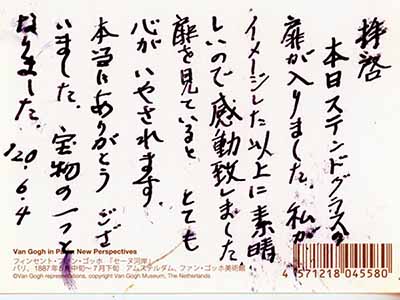 拝啓
本日ステンドグラスの
扉が入りました。私が
イメージした以上に素晴
しいので感動致しました
扉を見ていると とても
心が いやされます。
本当にありがとう ござ
いました。宝物の一つと
なりました。
'20.6.4
Van Gogh in Paris: New Perspectives
フィンセント・ファン・ゴッホ 『セーヌ河岸』
パリ、1887年5月中旬〜7月下旬 アムステルダム、ファン・ゴッホ美術館
©Van Gogh representations, copyright Van Gogh Museum, The Netherlands
4571218045580